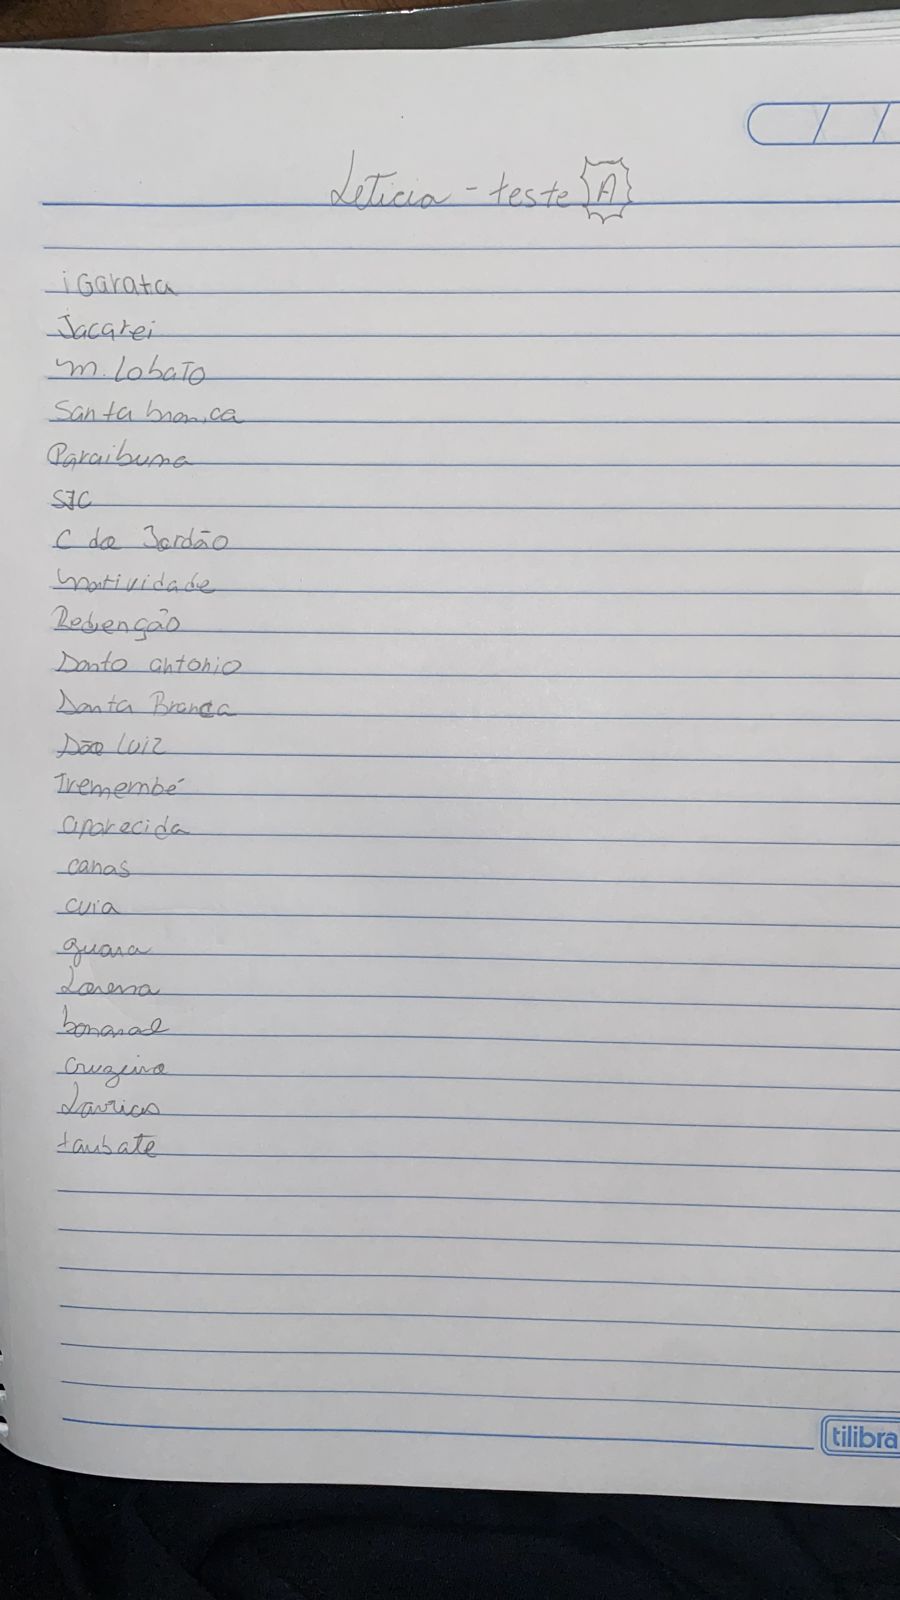 Leticia - teste A
iGarata
Jacarei
m. Lobato
Santa branca
Paraibuna
SJC
C do Jordão
natividade
Redenção
Santo antonio
Santa Branca
São Luiz
Tremembé
aparecida
canas
cuia
guara
Lorena
bananal
cruzeiro
Lavrias
taubate
tilibra